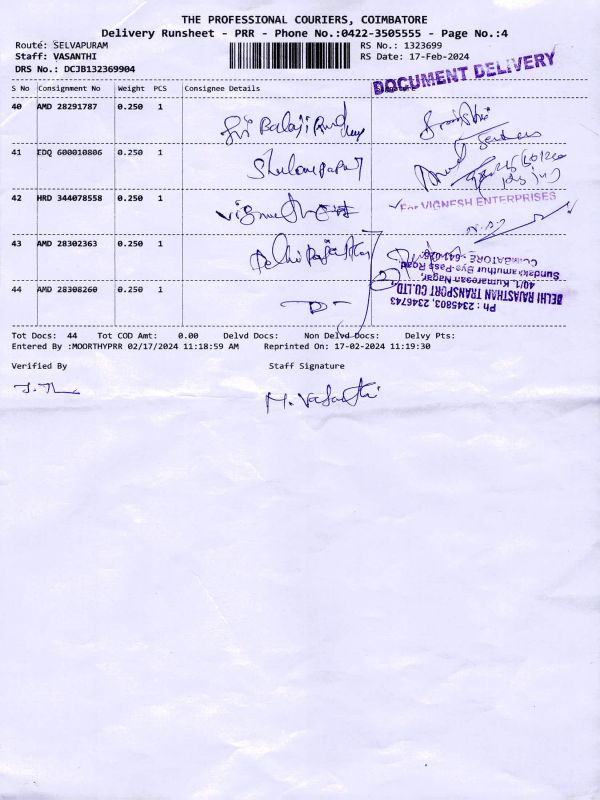 THE PROFESSIONAL COURIERS, COIMBATORE
Delivery Runsheet - PRR - Phone No.:0422-3505555 - Page No.:4
Route: SELVAPURAM RS No.: 1323699
Staff: VASANTHI RS Date: 17-Feb-2024
DRS No.: DCJB132369904
DOCUMENT DELIVERY
S No Consignment No Weight PCS Consignee Details
40 AMD 28291787 0.250 1 Sri Balaji
41 EDQ 600010806 0.250 1
42 HRD 344078558 0.250 1
For VIGNESH ENTERPRISES
43 AMD 28302363 0.250 1 Delhi Rajasthan
44 AMD 28308260 0.250 1 D -
DELHI RAJASTHAN TRANSPORT CO.LTD.
40/1, Kumaresan Nagar,
Sundakkamuthur Bye-Pass Road
COIMBATORE - 641
Ph : 2345803, 2346743
Tot Docs: 44 Tot COD Amt: 0.00 Delvd Docs: Non Delvd Docs: Delvy Pts:
Entered By :MOORTHYPRR 02/17/2024 11:18:59 AM Reprinted On: 17-02-2024 11:19:30
Verified By Staff Signature
M. Vasanthi